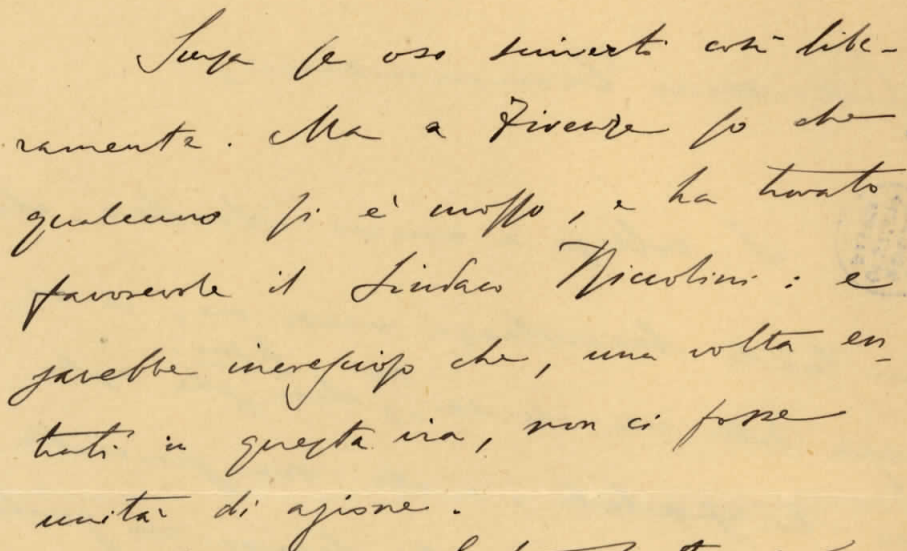 Scusa se oso scriverti così libe-
ramente. Ma a Firenze so che
qualcuno si è mosso, e ha trovato
favorevole il Sindaco Niccolini: e
sarebbe increscioso che, una volta en-
trati in questa via, non ci fosse
unità di azione.